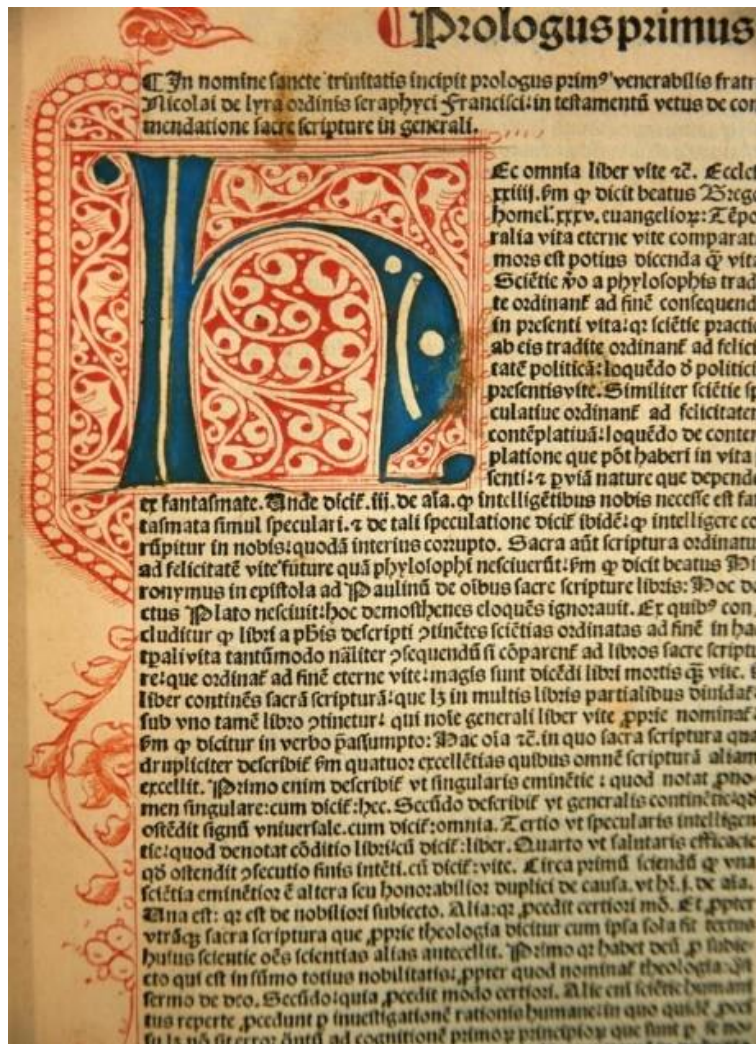 Prologus primus
¶ In nomine sancte trinitatis incipit prologus primꝰ venerabilis fratr
Nicolai de lyra ordinis seraphyci Francisci: in testamentū vetus de com
mendatione sacre scripture in generali.
HEc omnia liber vite ⁊c̄. Eccle
xxiiij. ẜm ꝙ dicit beatus Grego
homel'. xxxv. euangelioꝝ: Tēpo
ralia vita eterne vite comparat
mors est potius dicenda q̄ʒ vita
Sciētie ꝟo a phylosophis trad
te ordinant̄ ad finē consequend
in presenti vita: qꝛ sciētie practic
ab eis tradite ordinant̄ ad felici
tatē politicā: loquēdo ð politici
presentis vite. Similiter sciētie sp
culatiue ordinant̄ ad felicitatē
contēplatiuā: loquēdo de contem
platione que pōt haberi in vita
senti: ⁊ ꝑ viā nature que depende
ex fantasmate. Unde dicit̄. iij. de aīa. ꝙ intelligētibus nobis necesse est fan
tasmata simul speculari. ⁊ de tali speculatione dicit̄ ibidē: ꝙ intelligere co
rūpitur in nobis: quodā interius corrupto. Sacra aūt scriptura ordinatur
ad felicitatē vite future quā phylosophi nesciuerūt: ẜm ꝙ dicit beatus Hie
ronymus in epistola ad Paulinū de oībus sacre scripture libris: Hoc do
ctus Plato nesciuit: hoc demosthenes eloquēs ignorauit. Ex quibꝰ con
cluditur ꝙ libri a phīs descripti ꝯtinētes sciētias ordinatas ad finē in hac
tp̄ali vita tantūmodo nāliter ꝯsequendū si cōparent̄ ad libros sacre scriptu
re: que ordinat̄ ad finē eterne vite: magis sunt dicēdi libri mortis q̄ʒ vite.
liber continēs sacrā scripturā: que lꝫ in multis libris partialibus diuidat̄
sub vno tamē libro ꝯtinetur: qui noīe generali liber vite ꝓprie nominat̄
ẜm ꝙ dicitur in verbo p̄assumpto: Hac oīa ⁊c̄. in quo sacra scriptura qua
drupliciter describit̄ ẜm quatuor excellētias quibus omnē scripturā aliam
excellit. Primo enim describit̄ vt singularis eminētie: quod notat ꝓno
men singulare: cum dicit̄: hec. Secūdo describit̄ vt generalis continētie: qð
ostēdit signū vniuersale. cum dicit̄: omnia. Tertio vt specularis intelligen
tie: quod denotat cōditio libri: cū dicit̄: liber. Quarto vt salutaris efficacie
qð ostendit ꝯsecutio finis intēti. cū dicit̄: vite. Circa primū sciendū ꝙ vna
sciētia eminētior ē altera seu honorabilior duplici de causa. vt hr̄. j. de aīa.
Una est: qꝛ est de nobiliori subiecto. Alia: qꝛ ꝓcedit certiori mō. Et ꝓpter
vtrāqꝫ sacra scriptura que ꝓprie theologia dicitur cum ipsa sola sit textus
huius scientie oēs scientias alias antecellit. Primo qꝛ habet deū ꝓ subie
cto qui est in sūmo totius nobilitatis: ꝓpter quod nominat̄ theologia: q̄si
sermo de deo. Secūdo: quia ꝓcedit modo certiori. Alie enī sciētie humani
tus reperte ꝓcedunt ꝑ inuestigationē rationis humane: in quo quidē ꝓces
su lꝫ nō sit error q̄ntū ad cognitionē primoꝝ principioꝝ que sunt ꝑ se nota